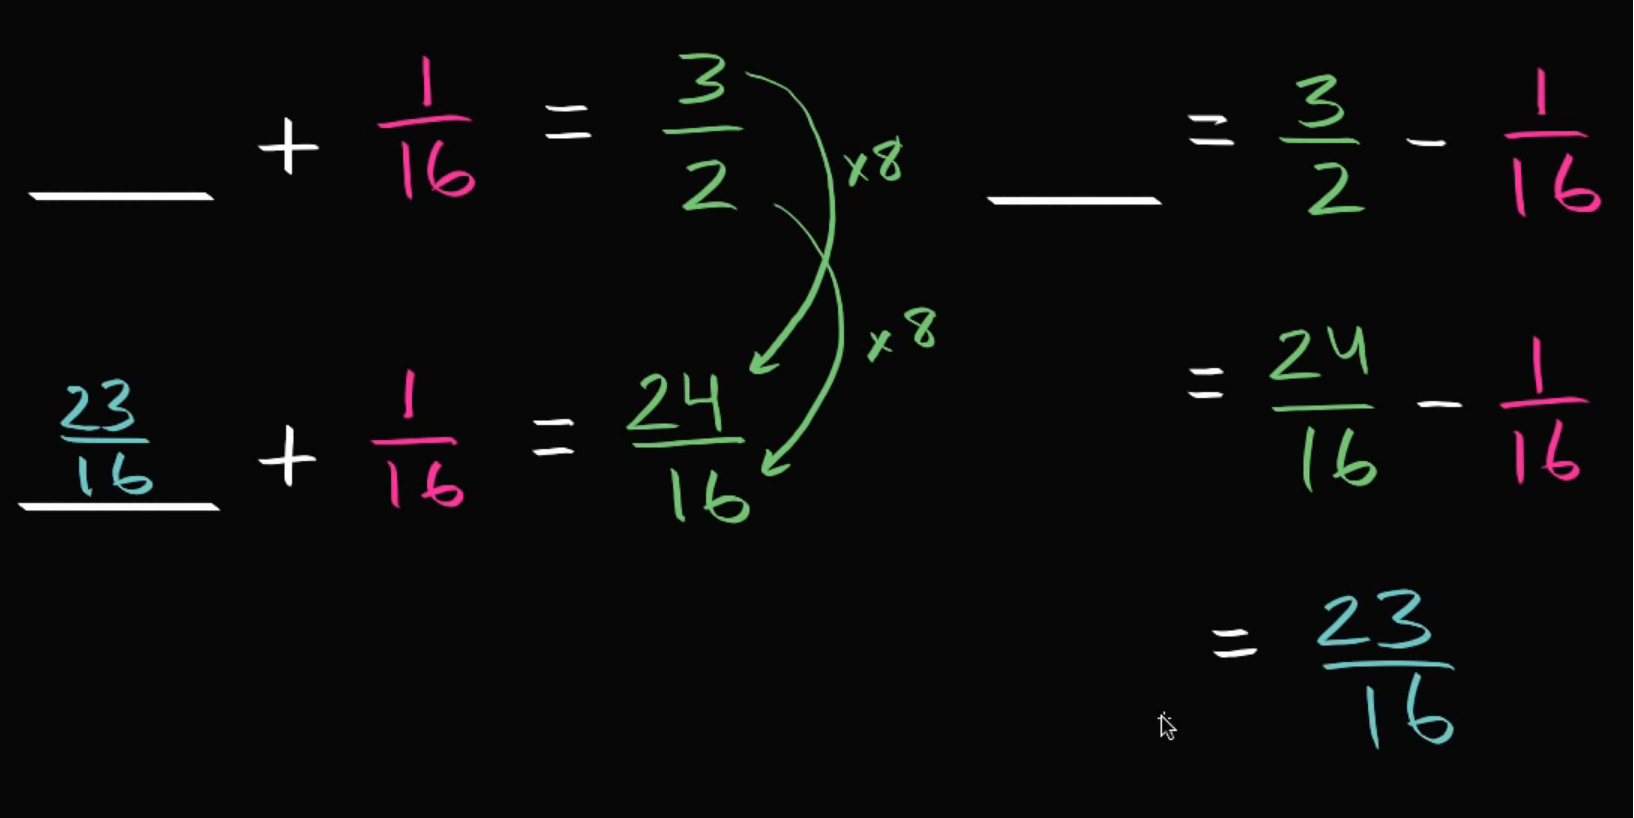 ___ + 1/16 = 3/2
×8
×8
23/16 + 1/16 = 24/16
___ = 3/2 - 1/16
= 24/16 - 1/16
= 23/16